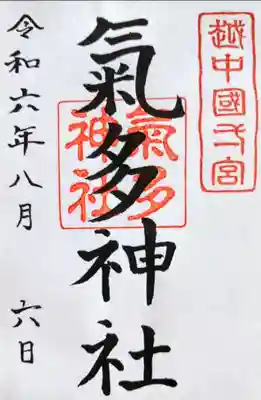 越中國弌宮
氣多神社
氣多
神社
令和六年八月 六日